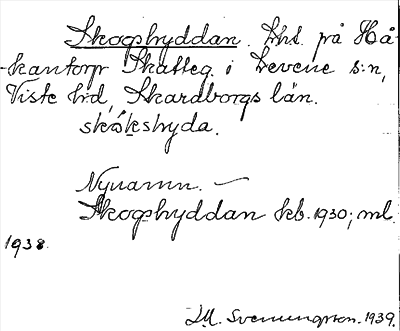 Skogshyddan. Lht. på Hå-
-kantorp Skatteg. i Levene s:n,
Viste hd, Skaraborgs län.
skókshyda.
Nynamn. —
Skogshyddan kb. 1930; ml.
1938.
M. Svenungsson. 1939.